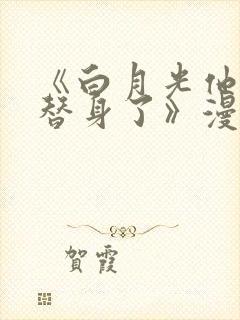 《白月光他
替身了》漫
賀霞